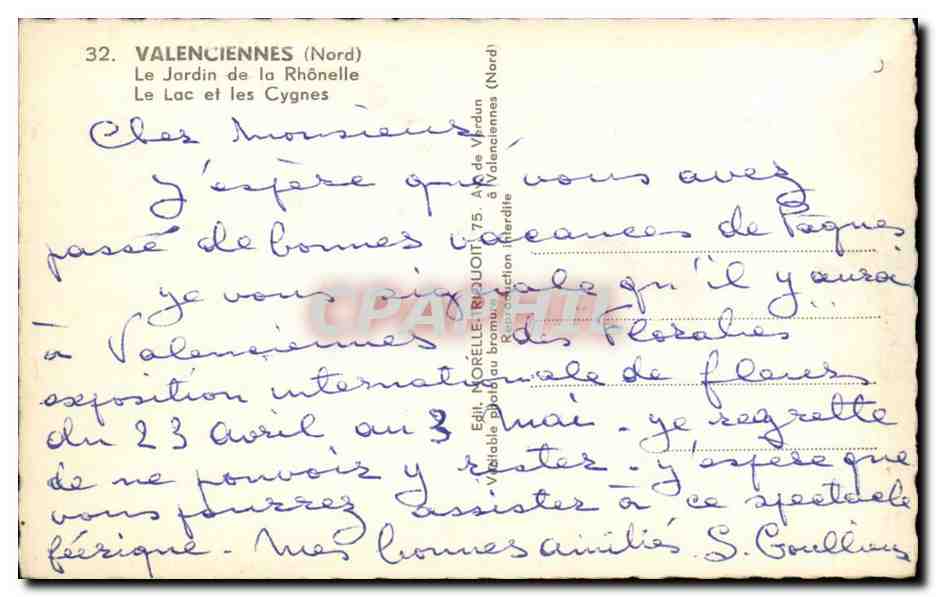 32. VALENCIENNES (Nord)
Le Jardin de la Rhônelle
Le Lac et les Cygnes
Cher Monsieur,
J'espère que vous avez
passé de bonnes vacances de Pâques
je vous signale qu'il y aura
à Valenciennes des Floralies
exposition internationale de fleurs
du 23 avril au 3 Mai - je regrette
de ne pouvoir y rester - j'espère que
vous pourrez assister à ce spectacle
féérique - Mes bonnes amitiés S.
Edit. MORELLE-TRIQUOIT, 75, Av. de Verdun
à Valenciennes (Nord)
Véritable photo au bromure
Reproduction interdite
CPAPHIL